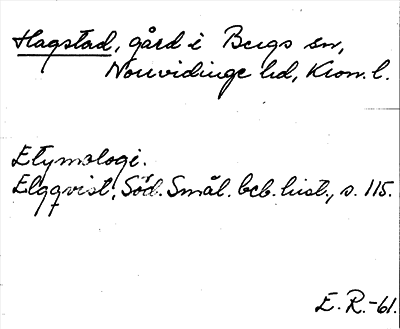 Hagstad, gård i Bergs sn,
Norrvidinge hd, Kron. l.
Etymologi.
Elgqvist, Söd. Smål. beb. hist., s. 115.
E. R. -61.